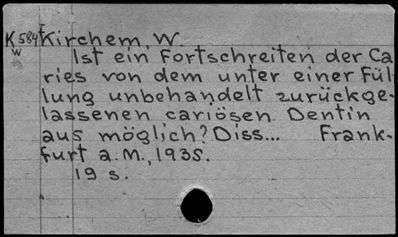 K584 Kirchem, W.
w
Ist ein Fortschreiten der Ca
ries von dem unter einer Fül
lung unbehandelt zurückge-
lassenen cariösen Dentin
aus möglich? Diss... Frank-
furt a.M., 1935.
19 s.